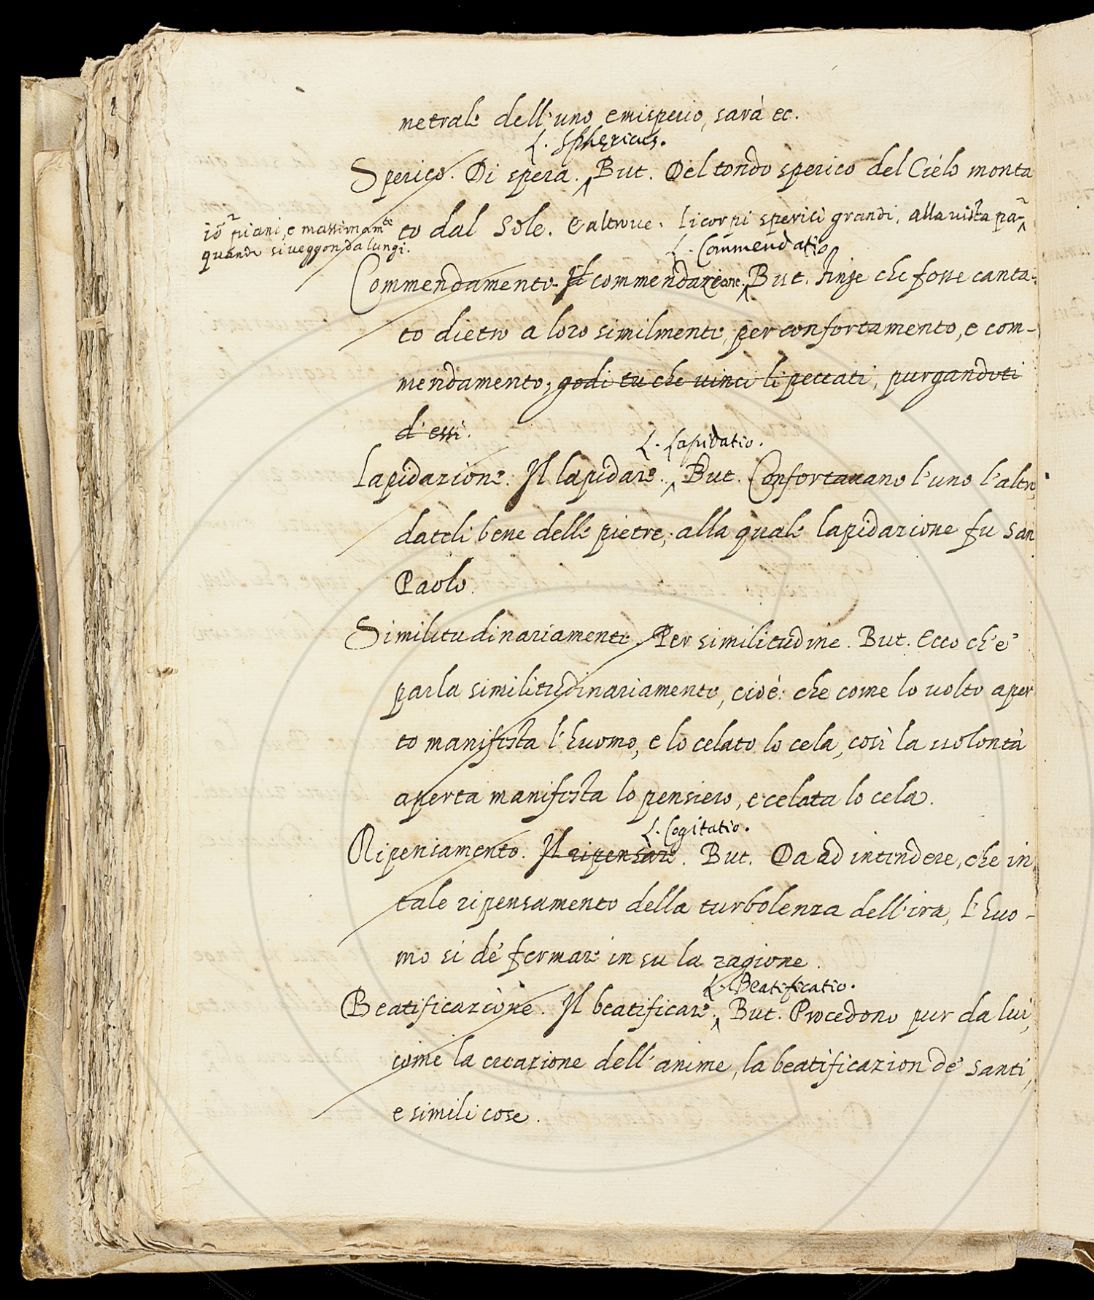 metrale dell'uno emisperio, sarà ec.
L. Sphericus.
Sperico. Di spera. ‸ But. Del tondo sperico del Cielo monta
to dal Sole. E altrove. Li corpi sperici grandi, alla vista pa‸
iō piani, e massimam.te
quando si veggon da lungi.
L. Commendatio
Commendamento. Il commendazione. ‸ But. Finge che fosse canta-
to dietro a loro similmente, per confortamento, e com-
mendamento, godi tu che vinci li peccati, purgandoti
d'essi.
L. Lapidatio.
Lapidazione. Il lapidare. ‸ But. Confortavano l'uno l'altro,
dateli bene delle pietre, alla quale lapidazione fu San
Paolo.
Similitudinariamente. Per similitudine. But. Ecco ch'e'
parla similitudinariamente, cioè: che come lo volto aper
to manifesta l'huomo, e lo celato lo cela, così la volontà
aperta manifesta lo pensiero, e celata lo cela.
L. Cogitatio.
Ripensamento. Il ripensare. But. Da ad intendere, che in
tale ripensamento della turbolenza dell'ira, l'huo-
mo si de' fermare in su la ragione.
L. Beatificatio.
Beatificazione. Il beatificare. ‸ But. Procedono pur da lui,
come la creazione dell'anime, la beatificazion de' Santi,
e simili cose.